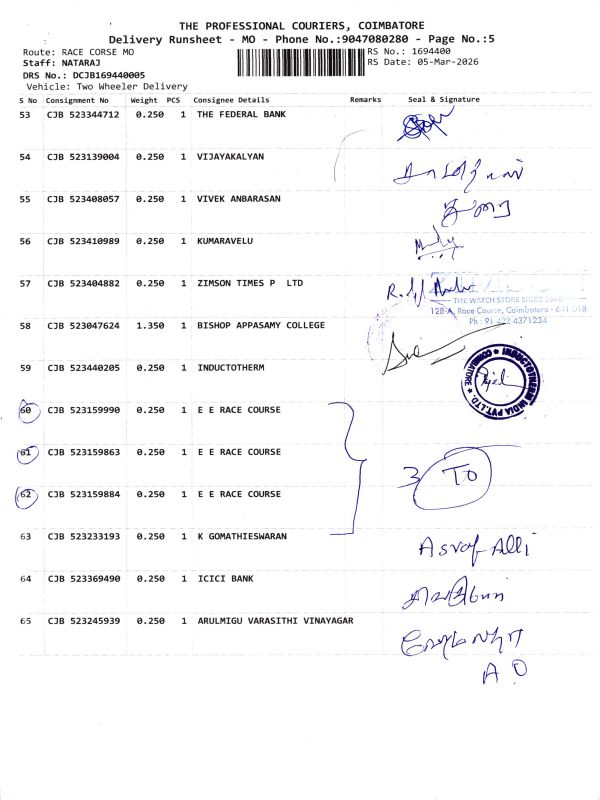 THE PROFESSIONAL COURIERS, COIMBATORE
Delivery Runsheet - MO - Phone No.:9047080280 - Page No.:5
Route: RACE CORSE MO
RS No.: 1694400
Staff: NATARAJ
RS Date: 05-Mar-2026
DRS No.: DCJB169440005
Vehicle: Two Wheeler Delivery
S No Consignment No Weight PCS Consignee Details Remarks Seal & Signature
53 CJB 523344712 0.250 1 THE FEDERAL BANK
54 CJB 523139004 0.250 1 VIJAYAKALYAN
55 CJB 523408057 0.250 1 VIVEK ANBARASAN
56 CJB 523410989 0.250 1 KUMARAVELU
57 CJB 523404882 0.250 1 ZIMSON TIMES P LTD
THE WATCH STORE SINCE 1948
128-A, Race Course, Coimbatore - 641 018
Ph : 91 422 4371234
58 CJB 523047624 1.350 1 BISHOP APPASAMY COLLEGE
59 CJB 523440205 0.250 1 INDUCTOTHERM
INDUCTOTHERM INDIA PVT. LTD. * COIMBATORE *
60 CJB 523159990 0.250 1 E E RACE COURSE
61 CJB 523159863 0.250 1 E E RACE COURSE
3 TO
62 CJB 523159884 0.250 1 E E RACE COURSE
63 CJB 523233193 0.250 1 K GOMATHIESWARAN
Asraf Alli
64 CJB 523369490 0.250 1 ICICI BANK
65 CJB 523245939 0.250 1 ARULMIGU VARASITHI VINAYAGAR
A O